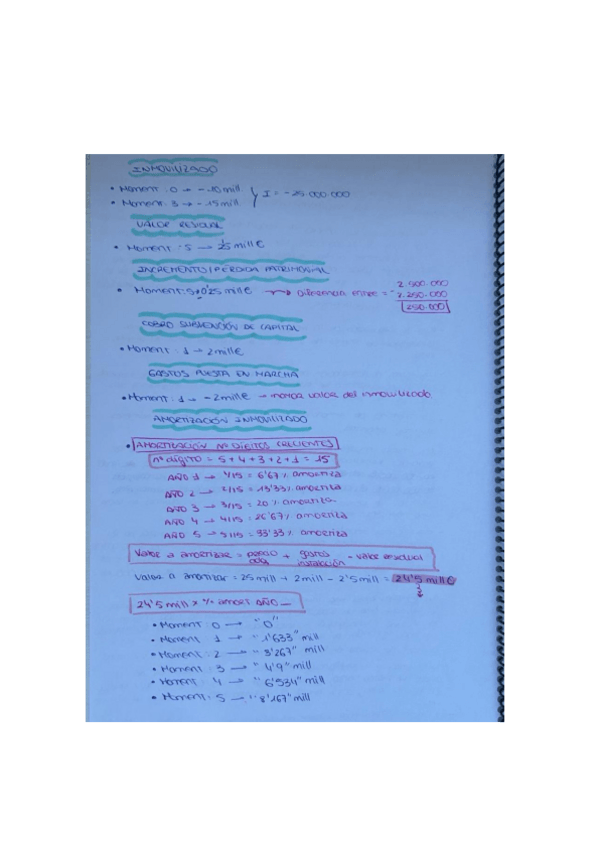 INMOVILIZADO
• Moment: 0 → -10 mill
• Moment: 3 → -15 mill. } I = -25.000.000
VALOR RESIDUAL
• Moment: 5 → mill €
INCREMENTO/PÉRDIDA PATRIMONIAL
• Moment: 5 → 0'25 mill € → Diferencia entre =
2.500.000
- 2.250.000
250.000
COBRO SUBVENCIÓN DE CAPITAL
• Moment: 1 → 2 mill €
GASTOS PUESTA EN MARCHA
• Moment: 1 → -2 mill € → mayor valor del inmovilizado
AMORTIZACIÓN INMOVILIZADO
• AMORTIZACIÓN Nº DÍGITOS CRECIENTES
nº dígito = 5 + 4 + 3 + 2 + 1 = 15
AÑO 1 → 1/15 = 6'67 % amortiza
AÑO 2 → 2/15 = 13'33 % amortiza
AÑO 3 → 3/15 = 20 % amortiza
AÑO 4 → 4/15 = 26'67 % amortiza
AÑO 5 → 5/15 = 33'33 % amortiza
Valor a amortizar = precio adq + gastos instalación - valor residual
Valor a amortizar = 25 mill + 2 mill - 2'5 mill = 24'5 mill €
24'5 mill x % amort AÑO —
• Moment 0 → "0"
• Moment: 1 → "1'633" mill
• Moment: 2 → "3'267" mill
• Moment: 3 → "4'9" mill
• Moment: 4 → "6'534" mill
• Moment: 5 → "8'167" mill